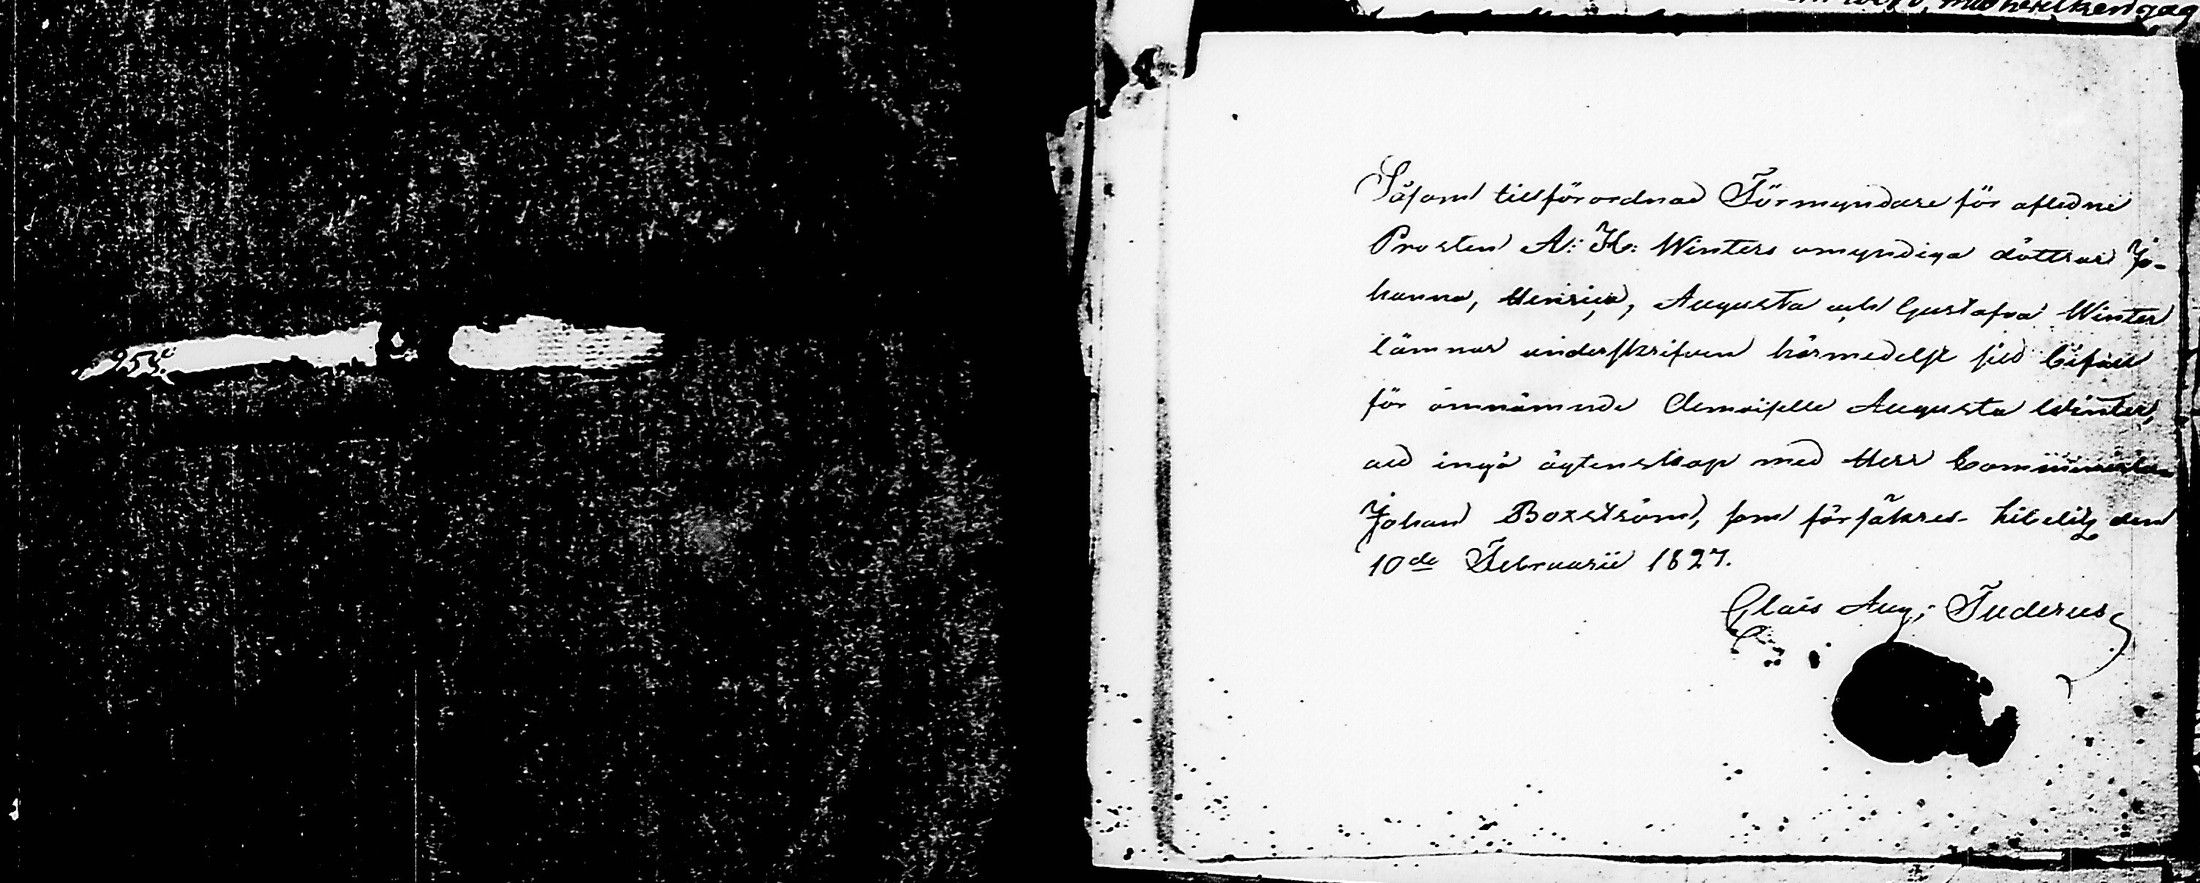 Såsom tillförordnad Förmyndare för aflednè
Prosten A: H: Winters omyndiga döttrar Jo-
hanna, Henrica, Augusta och Gustafva Winter
lämnar underskrifven härmedelst sitt bifall
för omnämnde Demoiselle Augusta Winter,
att ingå ägtenskap med Herr Comministern
Johan Boxström, som försäkras. Hibelitz den
10de Februarii 1827.
Claës Aug: Tuderus